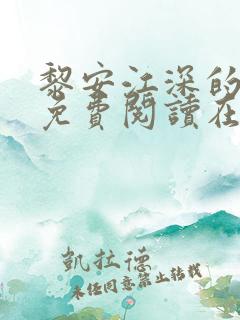 黎安江深的
免費閱讀在
凱拉德
未經同意禁止轉載